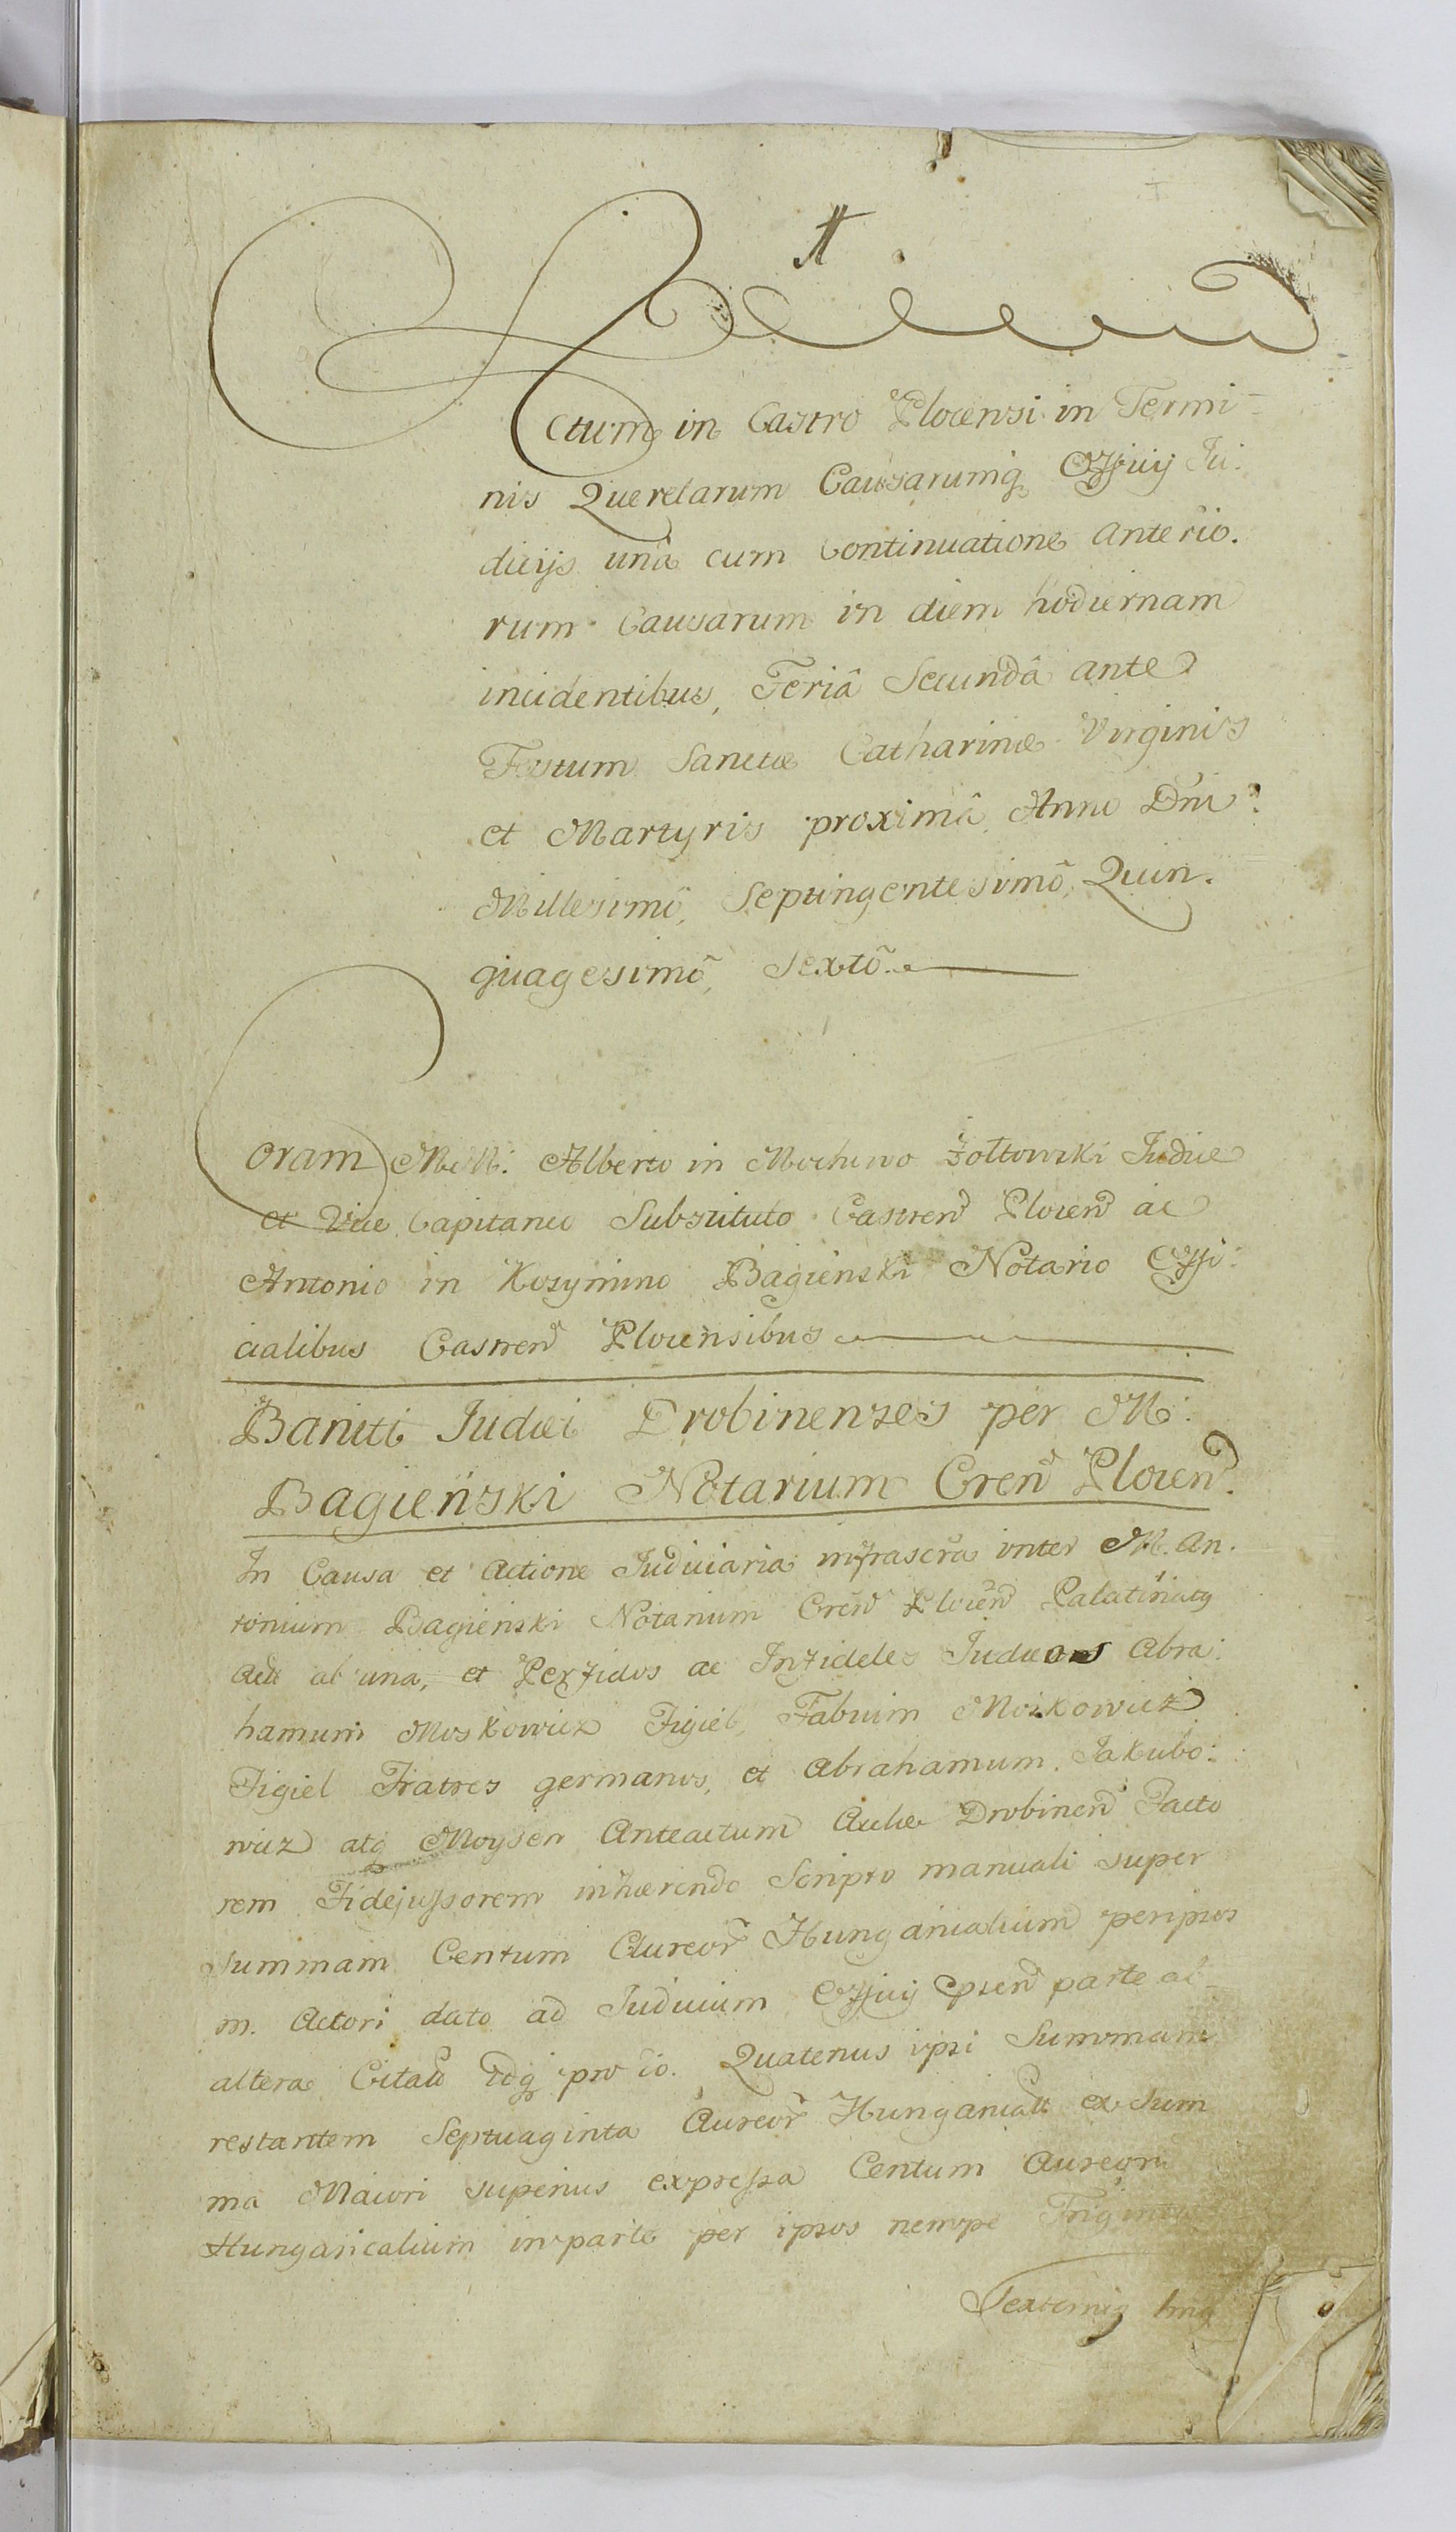 A
Actum in Castro Plocensi in Termi-
nis Querelarum Causarumq Officij Iu:
dicijs unà cum Continuatione Anterio.
rum Causarum in diem hodiernam
incidentibus, Feriâ Secundâ ante
Festum Sanctæ Catharinæ Virginis
et Martyris proximâ, Anno Dni:
Millesimô, Septingentesimô, Quin.
quagesimô, Sextô.
Coram MM: Alberto in Mochowo Żołtowski Iudice
et Vice Capitaneo Substituto Castren Plocen ac
Antonio in Kozymino Bagieński Notario Offi:
cialibus Castren Plocensibus
Baniti Iudæi Drobinenses per M:
Bagieński Notarium Cren Plocen.
In Causa et Actione Iudiciaria infrascra inter M. An.
tonium Bagieński Notarium Cren Plocen Palatinatq
Act ab una, et Perfidos ac Infideles Iudæos Abra:
hamum Moskowicz Figiel, Fabium Moskowicz
Figiel Fratres germanos, et Abrahamum Jakubo:
wicz atq Moysen Anteactum Aulæ Drobinen Facto
rem Fidejussorem inhærendo Scripto manuali super
Summam Centum Aureor Hungaricalium per ipsos
m. Actori dato ad Iudicium Officij psen parte ab
altera Citatt Idq pro eo. Quatenus ipsi Summam
restantem Septuaginta Aureor Hungaricatt ex Sum
ma Maiori superius expressa Centum Aureor
Hungaricalium in parte per ipsos nempe Triginta
Sexternig